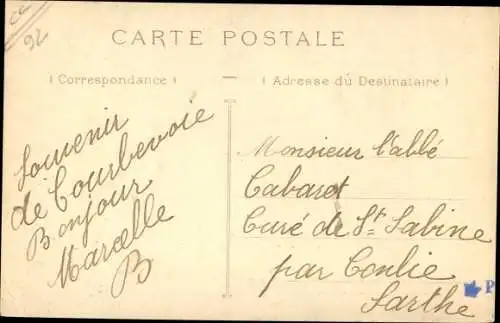 CC
92
CARTE POSTALE
Correspondance
Adresse du Destinataire
Souvenir
de Courbevoie
Bonjour
Marcelle
B
Monsieur l'abbé
Cabaret
Curé de St Sabine
par Conlie
Sarthe
P